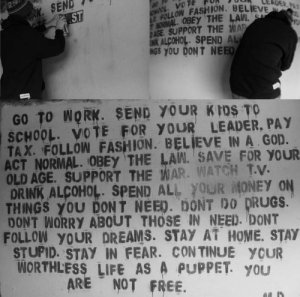 SEND
ST
LEADER. PAY
SCHOOL. VOTE FOR YOUR
FOLLOW FASHION. BELIEVE
NORMAL. OBEY THE LAW.
AGE. SUPPORT THE WAR
DRINK ALCOHOL. SPEND ALL
THINGS YOU DONT NEED
GO TO WORK. SEND YOUR KIDS TO
SCHOOL. VOTE FOR YOUR LEADER. PAY
TAX. FOLLOW FASHION. BELIEVE IN A GOD.
ACT NORMAL. OBEY THE LAW. SAVE FOR YOUR
OLD AGE. SUPPORT THE WAR. WATCH T.V.
DRINK ALCOHOL. SPEND ALL YOUR MONEY ON
THINGS YOU DONT NEED. DONT DO DRUGS.
DONT WORRY ABOUT THOSE IN NEED. DONT
FOLLOW YOUR DREAMS. STAY AT HOME. STAY
STUPID. STAY IN FEAR. CONTINUE YOUR
WORTHLESS LIFE AS A PUPPET. YOU
ARE NOT FREE.
M.D.